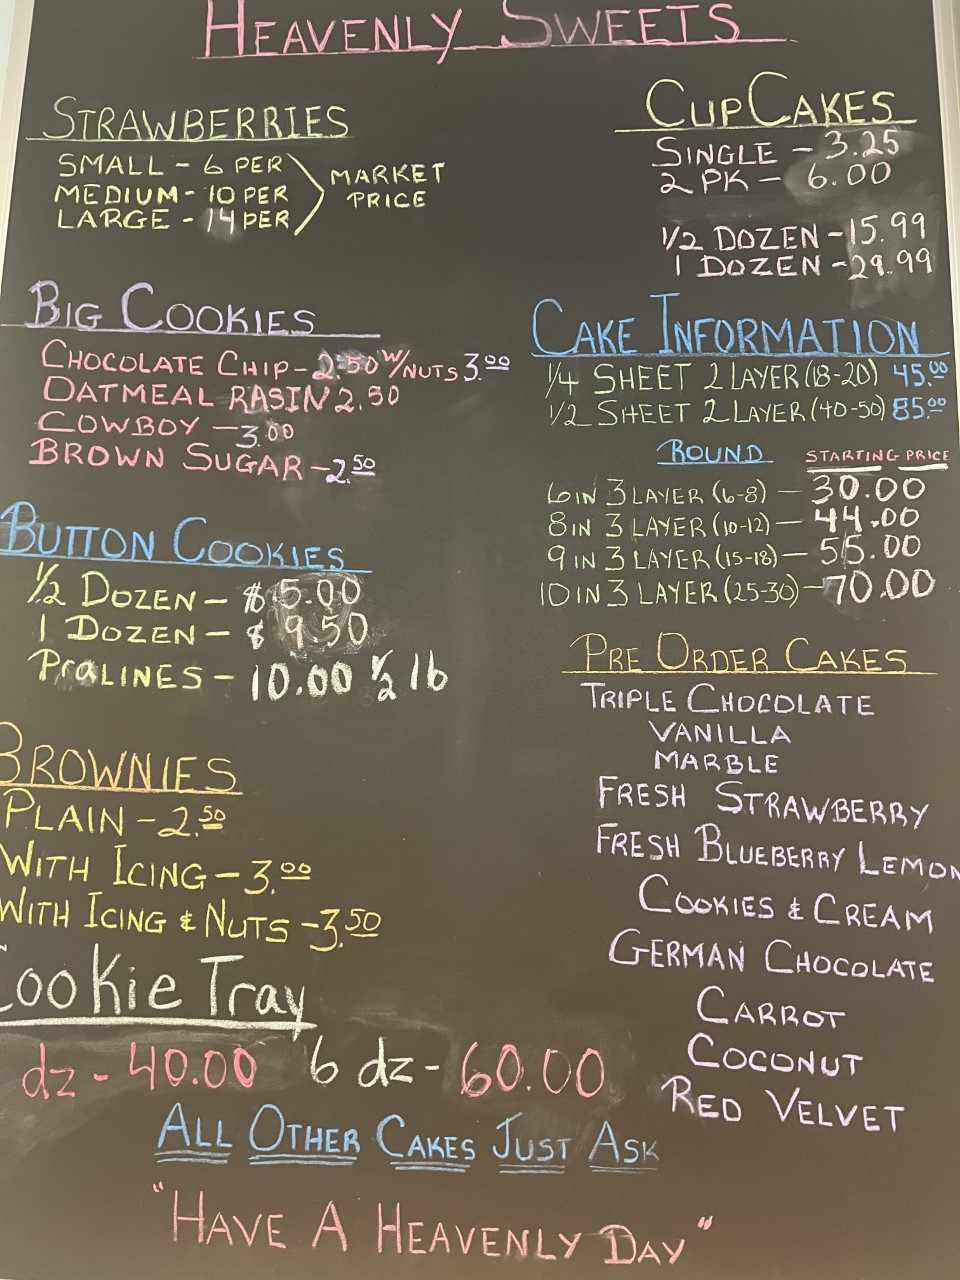 HEAVENLY SWEETS
STRAWBERRIES
SMALL - 6 PER
MEDIUM - 10 PER
LARGE - 14 PER
MARKET
PRICE
BIG COOKIES
CHOCOLATE CHIP - 2.50 W/NUTS 3.00
OATMEAL RASIN 2.50
COWBOY - 3.00
BROWN SUGAR - 2.50
BUTTON COOKIES
1/2 DOZEN - $ 5.00
1 DOZEN - $ 9.50
PRALINES - 10.00 1/2 lb
BROWNIES
PLAIN - 2.50
WITH ICING - 3.00
WITH ICING & NUTS - 3.50
Cookie Tray
dz - 40.00 6 dz - 60.00
CUPCAKES
SINGLE - 3.25
2 PK - 6.00
1/2 DOZEN - 15.99
1 DOZEN - 29.99
CAKE INFORMATION
1/4 SHEET 2 LAYER (18-20) 45.00
1/2 SHEET 2 LAYER (40-50) 85.00
ROUND STARTING PRICE
6 IN 3 LAYER (6-8) - 30.00
8 IN 3 LAYER (10-12) - 44.00
9 IN 3 LAYER (15-18) - 55.00
10 IN 3 LAYER (25-30) - 70.00
PRE ORDER CAKES
TRIPLE CHOCOLATE
VANILLA
MARBLE
FRESH STRAWBERRY
FRESH BLUEBERRY LEMON
COOKIES & CREAM
GERMAN CHOCOLATE
CARROT
COCONUT
RED VELVET
ALL OTHER CAKES JUST ASK
"HAVE A HEAVENLY DAY"